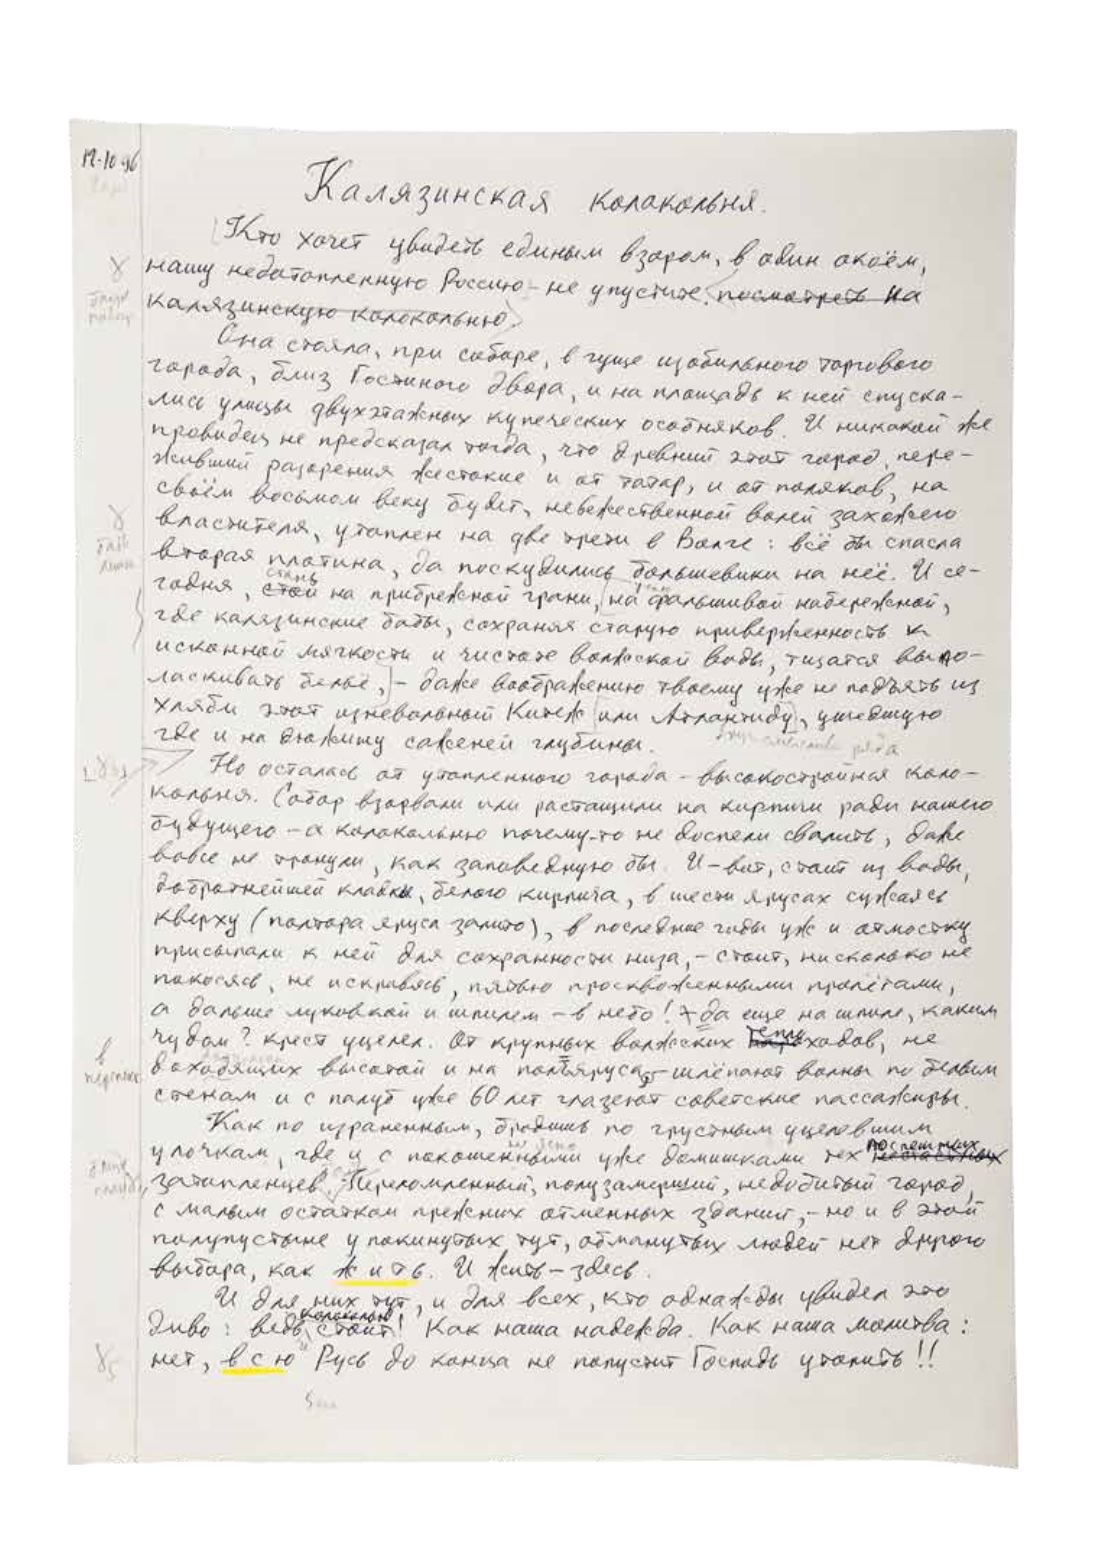 12.10.96
Калязинская колокольня.
Кто хочет увидеть единым взором, в один окоём,
нашу недотопленную Россию – не упустите посмотреть на
калязинскую колокольню.
Она стояла, при соборе, в гуще изобильного торгового
города, близ Гостиного двора, и на площадь к ней спуска-
лись улицы двухэтажных купеческих особняков. И никакой же
провидец не предсказал тогда, что древний этот город, пере-
живший разорения жестокие и от татар, и от поляков, на
своём восьмом веку будет, невежественной волей захожего
властителя, утоплен на две трети в Волге: всё бы спасла
вторая плотина, да поскудились большевики на неё. И се-
стань
годня, стой на прибрежной грани, на фальшивой набережной,
где калязинские бабы, сохраняя старую приверженность к
исконной мягкости и чистоте волжской воды, тщатся выпо-
ласкивать бельё, – даже воображению твоему уже не поднять из
хляби этот изневольный Китеж или Атлантиду, ушедшую
где и на дюжину саженей глубины.
Но осталась от утопленного города – высокостройная коло-
кольня. Собор взорвали или растащили на кирпичи ради нашего
будущего – а колокольню почему-то не доспели свалить, даже
вовсе не тронули, как заповедную бы. И – вот, стоит из воды,
добротнейшей кладки, белого кирпича, в шести ярусах сужаясь
кверху (полтора яруса залито), в последние годы уж и отмостку
присыпали к ней для сохранности низа, – стоит, нисколько не
покосясь, не искривясь, пятью просквоженными пролётами,
а дальше луковкой и шпилем – в небо! Да ещё на шпиле, каким
чудом? крест уцелел. От крупных волжских теплоходов, не
доходящих высотой и на пол-яруса, – шлёпают волны по белым
стенам и с палуб уже 60 лет глазеют советские пассажиры.
Как по израненным, бродишь по грустным уцелевшим
поспешных
улочкам, где и с покошенными уже домишками тех
затопленцев. Переломленный, полузамерший, недобитый город,
с малым остатком прежних отменных зданий, – но и в этой
полупустыне у покинутых тут, обманутых людей нет другого
выбора, как жить. И жить – здесь.
И для них тут, и для всех, кто однажды увидел это
колокольня
диво: ведь стоит! Как наша надежда. Как наша молитва:
нет, всю Русь до конца не попустит Господь утопить!!